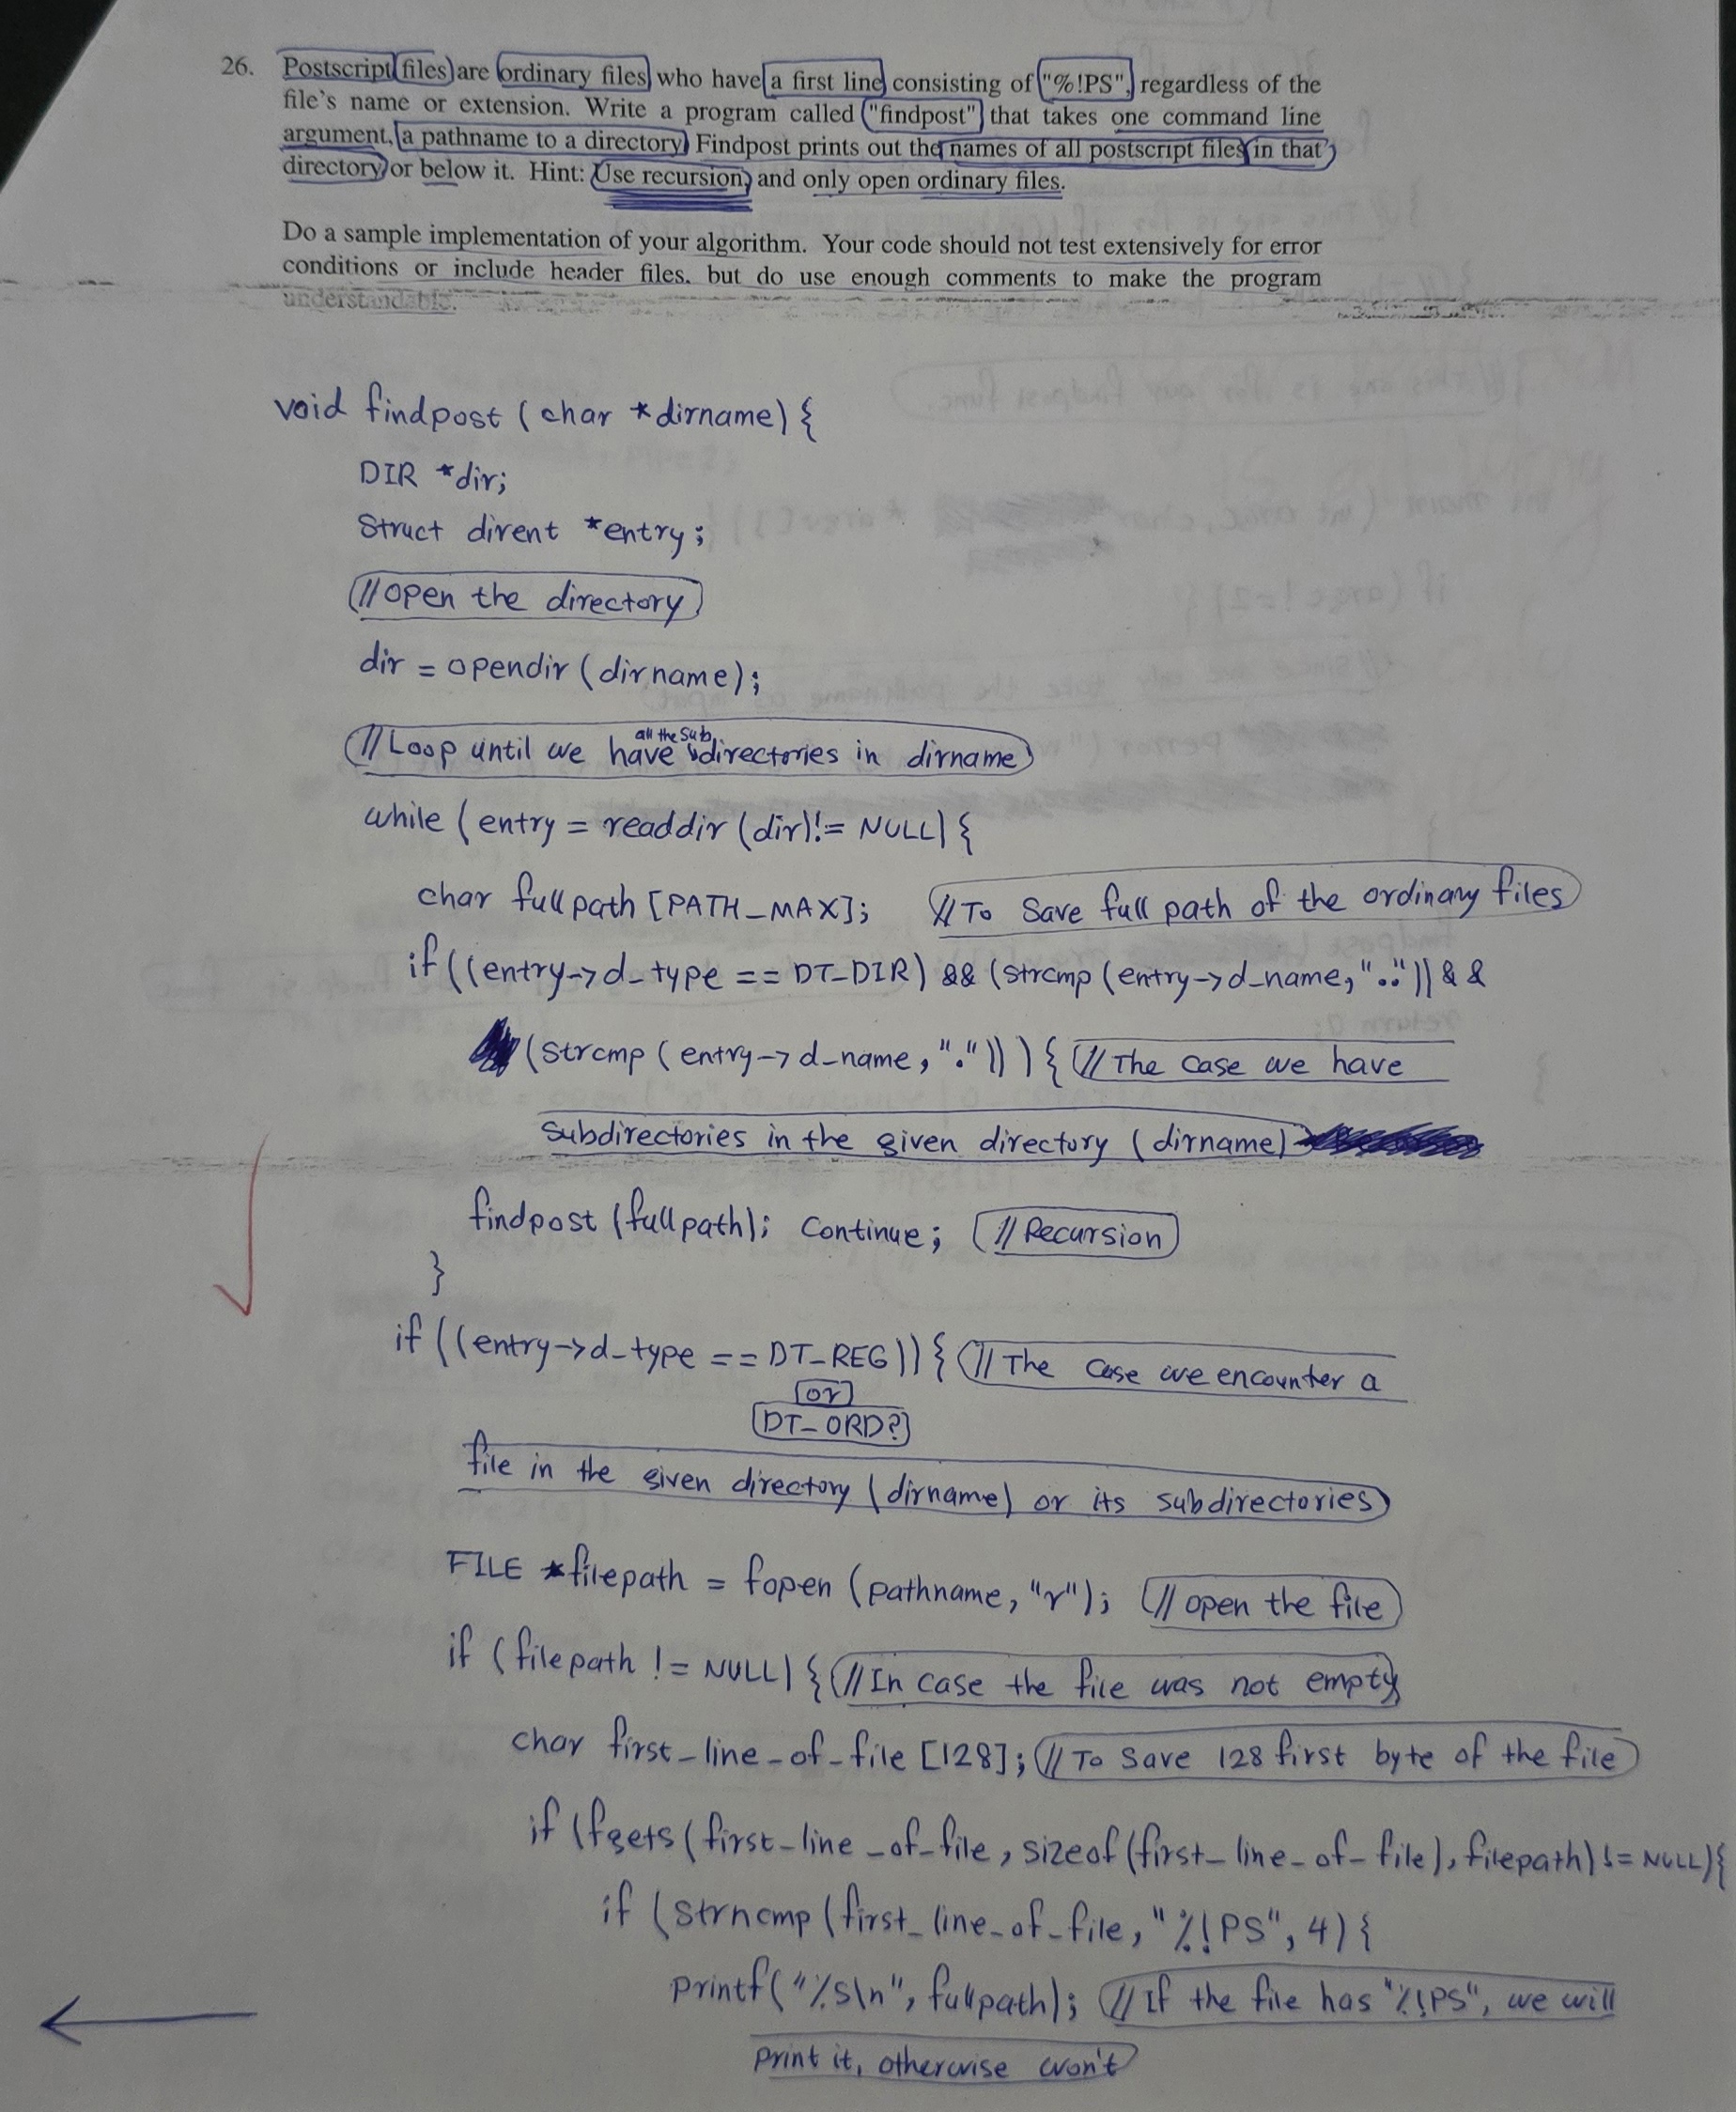 26. Postscript files are ordinary files who have a first line consisting of "%!PS", regardless of the
file's name or extension. Write a program called "findpost" that takes one command line
argument, a pathname to a directory. Findpost prints out the names of all postscript files in that
directory or below it. Hint: Use recursion, and only open ordinary files.
Do a sample implementation of your algorithm. Your code should not test extensively for error
conditions or include header files, but do use enough comments to make the program
understandable.
void findpost (char *dirname) {
DIR *dir;
Struct dirent *entry;
//open the directory
dir = opendir (dirname);
all the sub
//Loop until we have directories in dirname
while (entry = readdir (dir) != NULL) {
char fullpath [PATH_MAX]; // To save full path of the ordinary files
if ((entry->d_type == DT_DIR) && (strcmp (entry->d_name, "..")) &&
(strcmp (entry->d_name, ".")) ) { // The case we have
subdirectories in the given directory (dirname)
findpost (fullpath); continue; // Recursion
}
if ((entry->d_type == DT_REG)) { // The case we encounter a
or
DT_ORD?
file in the given directory (dirname) or its subdirectories
FILE *filepath = fopen (pathname, "r"); // open the file
if (filepath != NULL) { // In case the file was not empty
char first_line_of_file [128]; // To save 128 first byte of the file
if (fgets (first_line_of_file, sizeof (first_line_of_file), filepath) != NULL) {
if (strncmp (first_line_of_file, "%!PS", 4) {
printf("%s\n", fullpath); // If the file has "%!PS", we will
print it, otherwise won't